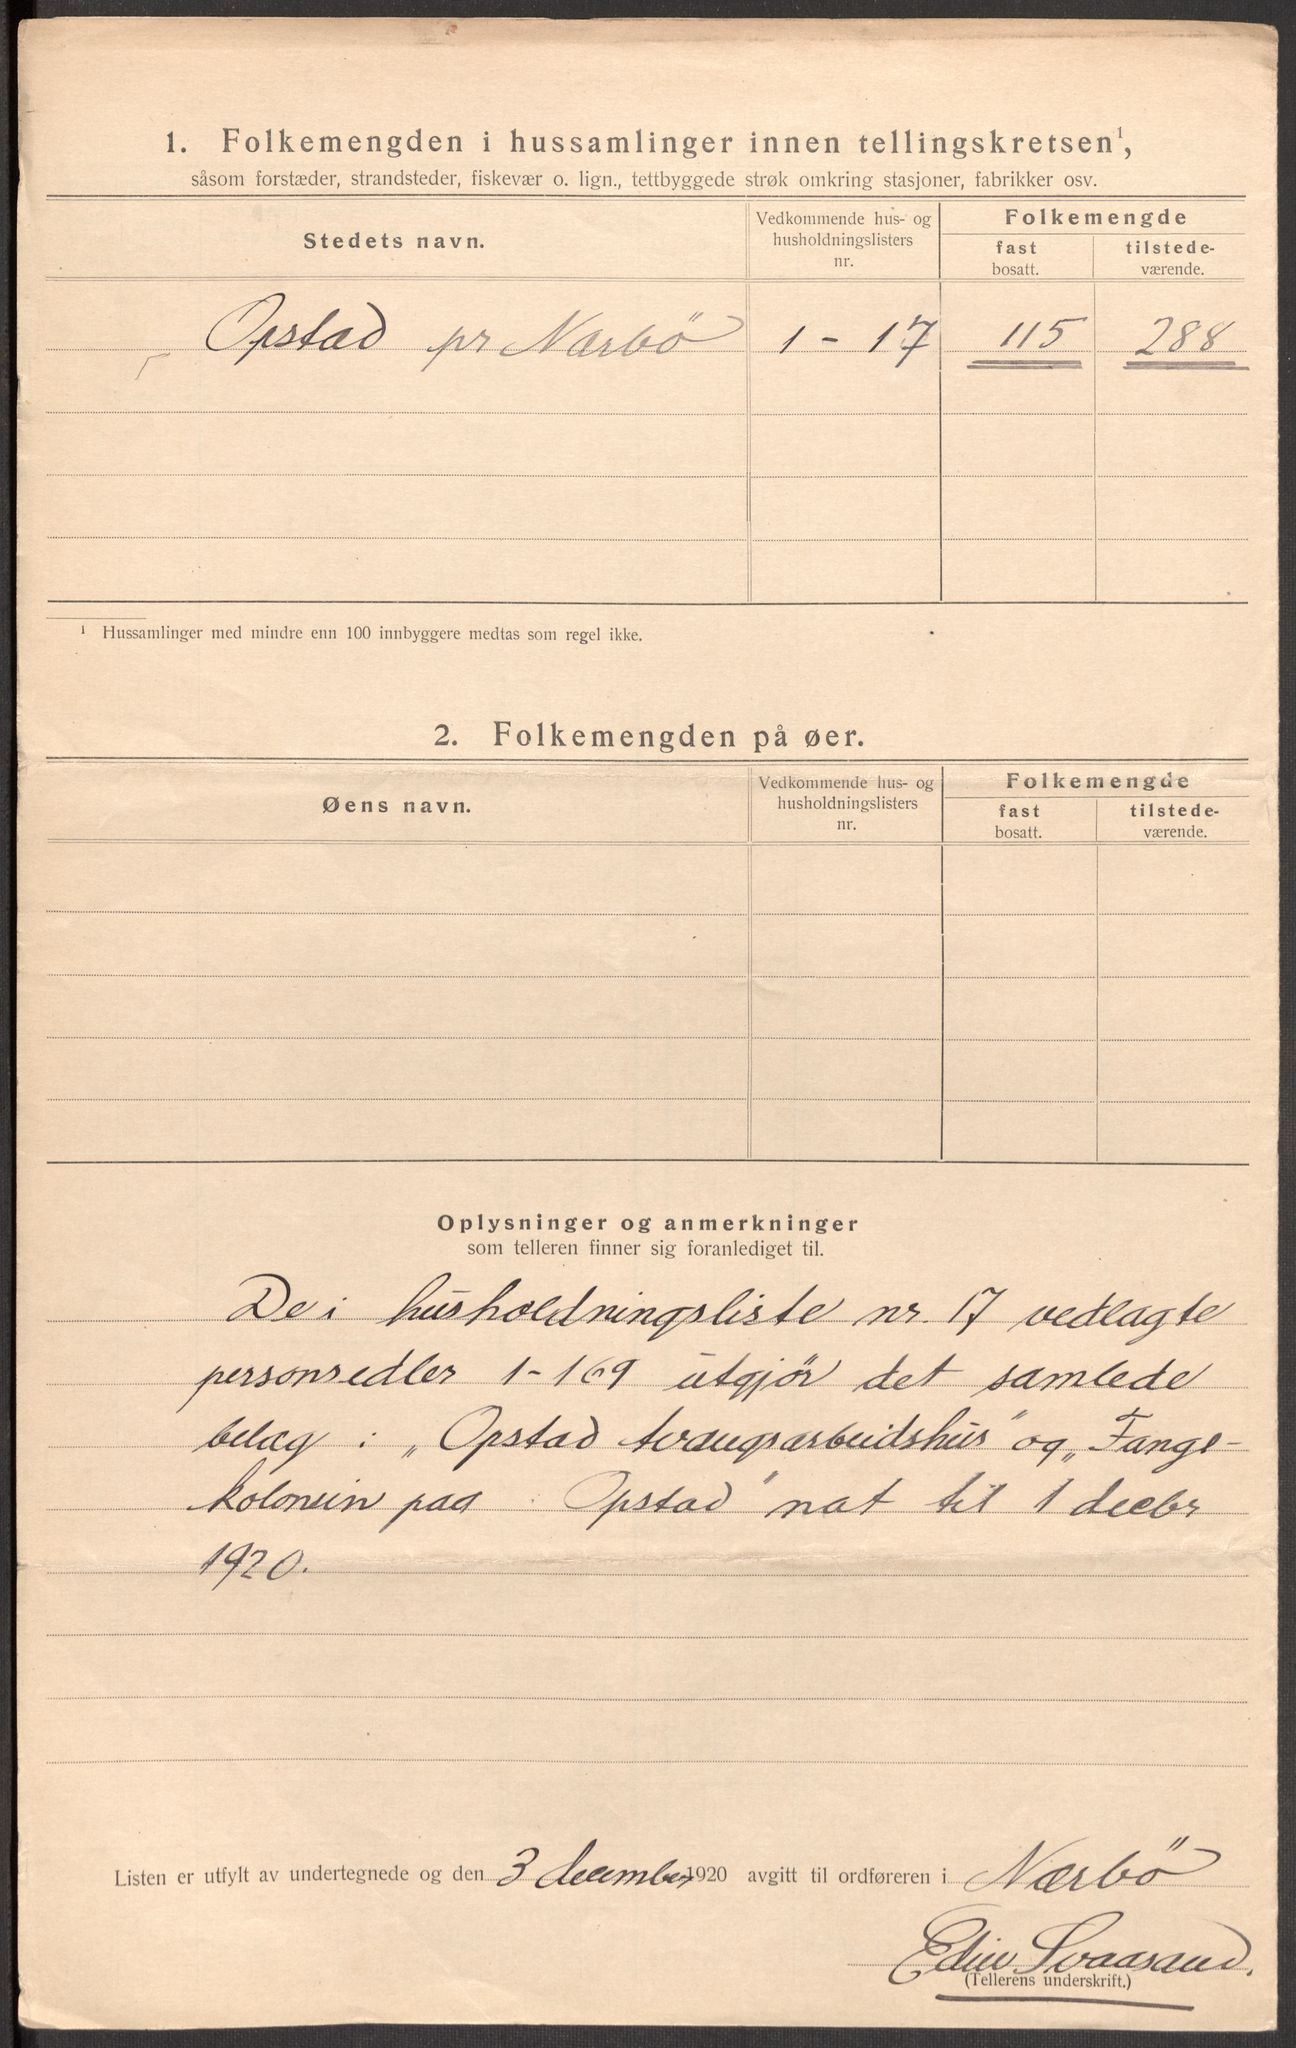 1. Folkemengden i hussamlinger innen tellingskretsen¹,
såsom forstæder, strandsteder, fiskevær o. lign., tettbyggede strøk omkring stasjoner, fabrikker osv.
Stedets navn.
Vedkommende hus- og
husholdningslisters
nr.
Folkemengde
fast
bosatt.
tilstede-
værende.
Opstad pr Nærbö 1 - 17 115 288
¹ Hussamlinger med mindre enn 100 innbyggere medtas som regel ikke.
2. Folkemengden på øer.
Øens navn.
Vedkommende hus- og
husholdningslisters
nr.
Folkemengde
fast
bosatt.
tilstede-
værende.
Oplysninger og anmerkninger
som telleren finner sig foranlediget til.
De i husholdningsliste nr. 17 vedlagte
personsedler 1-169 utgjör det samlede
belæg i „Opstad tvangsarbeidshus" og „Fange-
kolonien paa Opstad" nat til 1 decbr
1920.
Listen er utfylt av undertegnede og den 3 december 1920 avgitt til ordføreren i Nærbö
Edin Svaasand.
(Tellerens underskrift.)